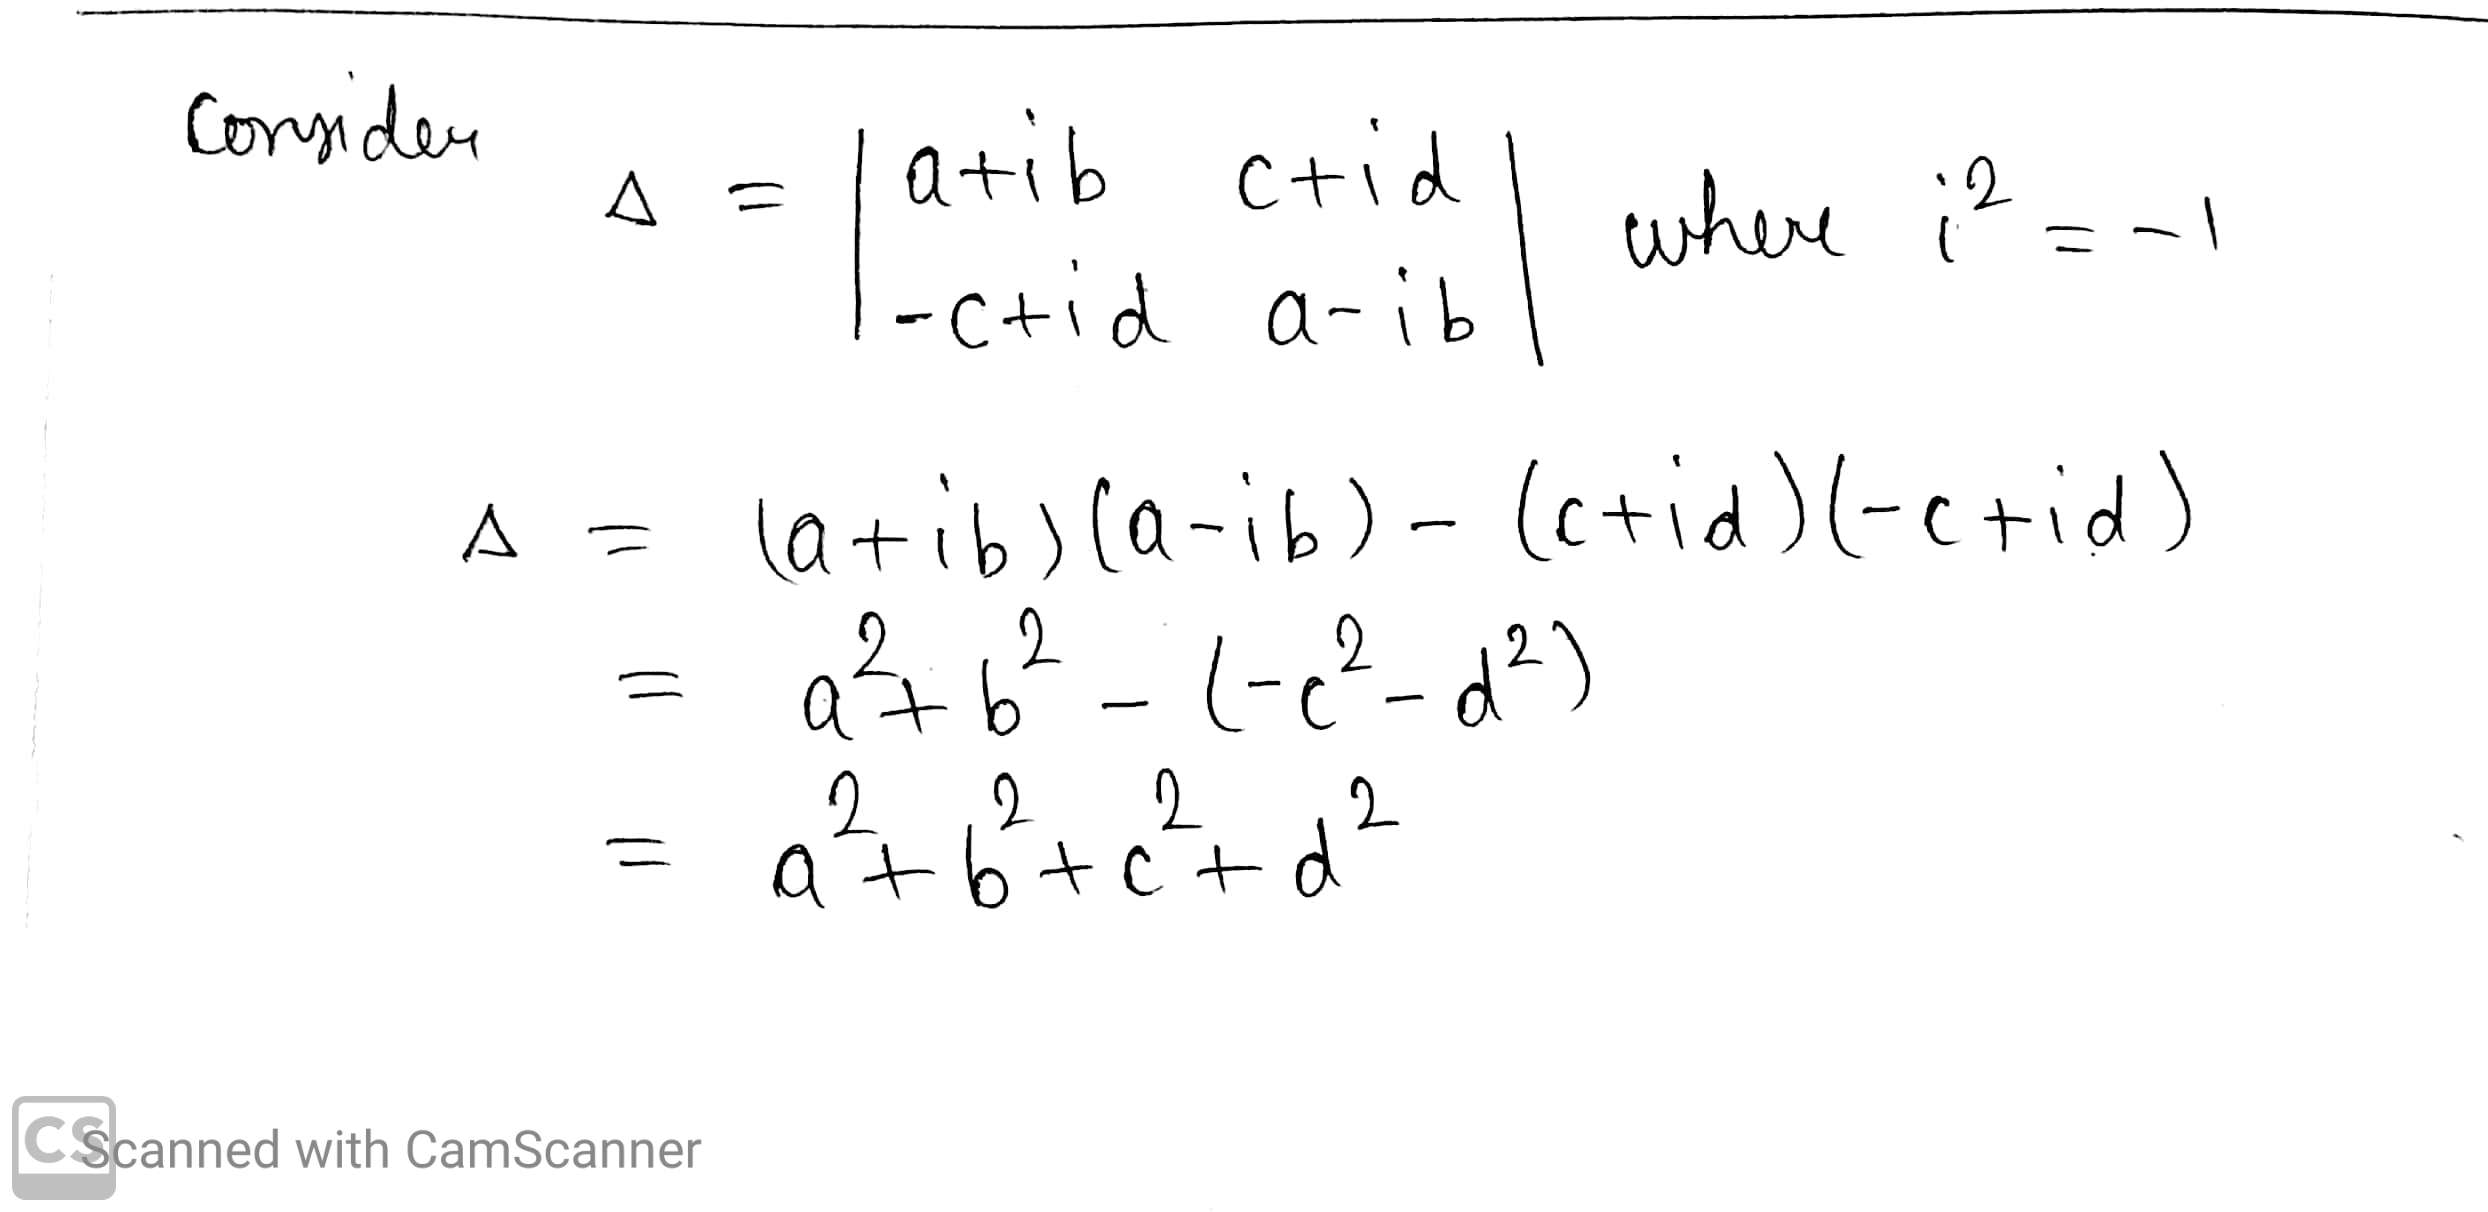 Consider
Δ = | a+ib c+id | where i² = -1
| -c+id a-ib |
Δ = (a+ib)(a-ib) - (c+id)(-c+id)
= a²+b² - (-c²-d²)
= a²+b²+c²+d²
CS Scanned with CamScanner